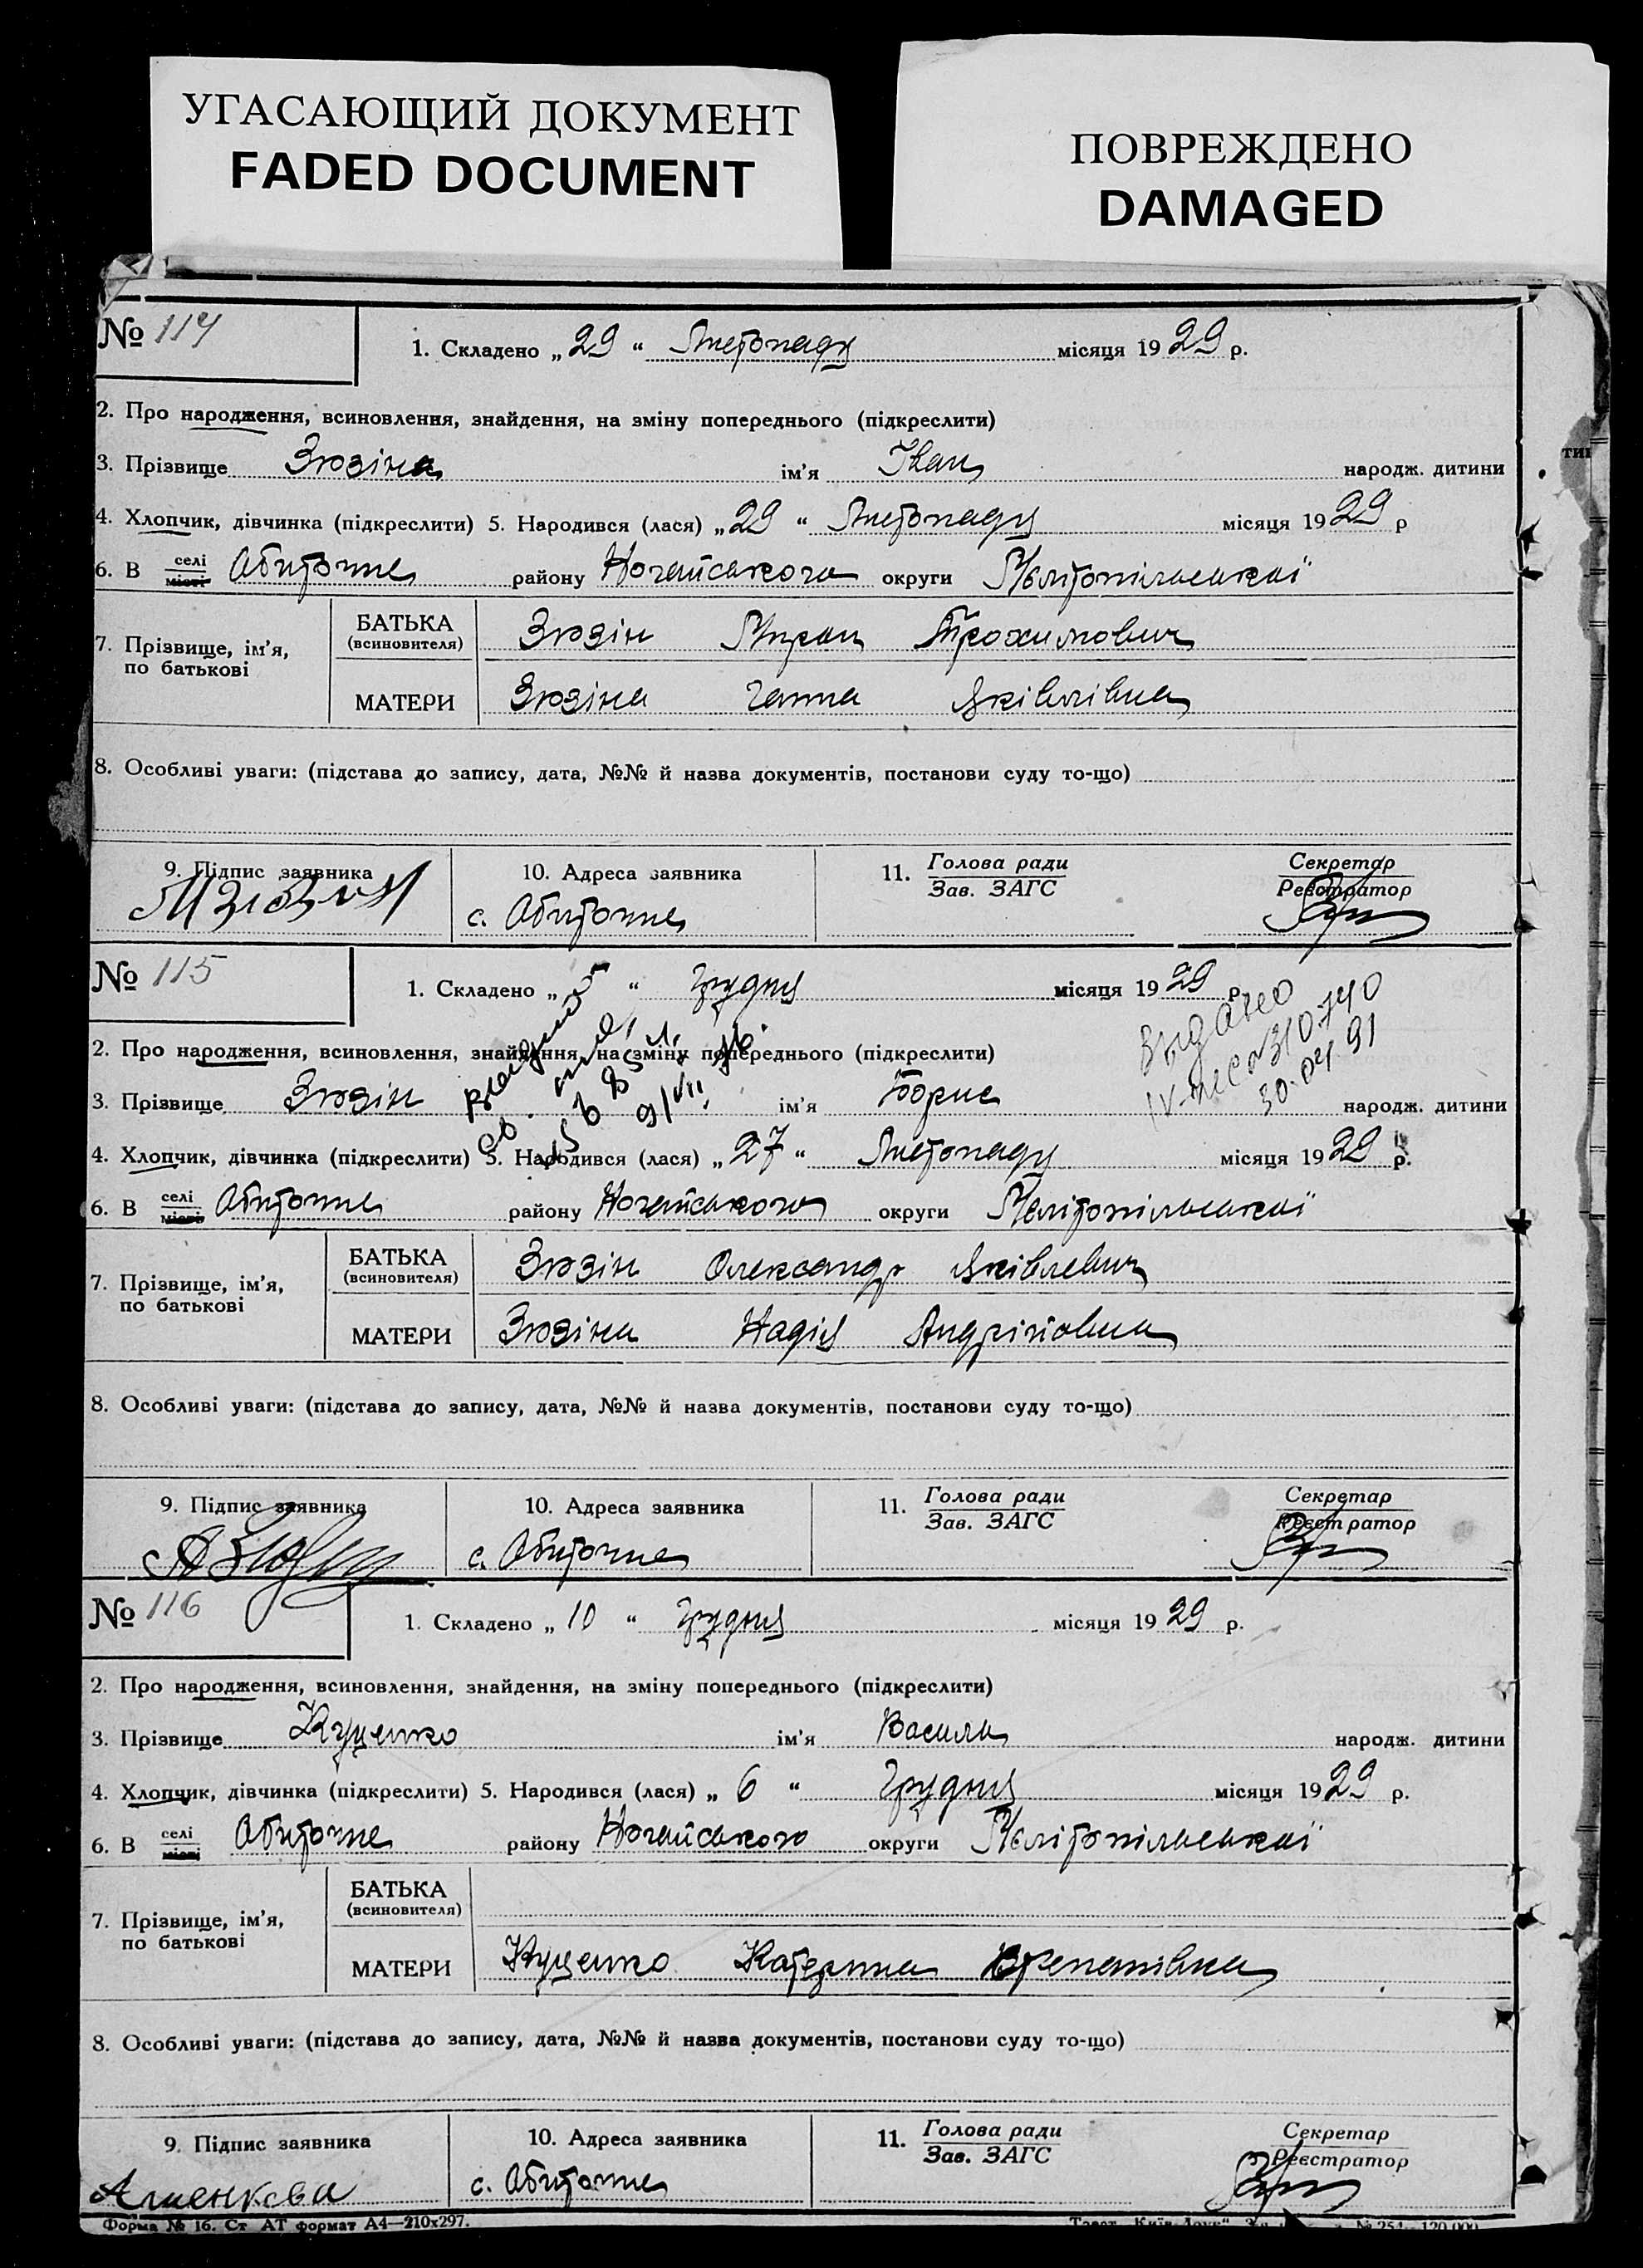 УГАСАЮЩИЙ ДОКУМЕНТ
FADED DOCUMENT
ПОВРЕЖДЕНО
DAMAGED
№ 114
1. Складено „ 29 “ Листопаду місяця 1929 р.
2. Про народження, всиновлення, знайдення, на зміну попереднього (підкреслити)
3. Прізвище Зюзіна ім'я Іван народж. дитини
4. Хлопчик, дівчинка (підкреслити) 5. Народився (лася) „ 29 “ Листопаду місяця 1929 р
6. В селі місті Обиточне району Ногайського округи Мелітопільської
7. Прізвище, ім'я, по батькові
БАТЬКА (всиновителя) Зюзін Мирон Трохимович
МАТЕРИ Зюзіна Ганна Яківлівна
8. Особливі уваги: (підстава до запису, дата, №№ й назва документів, постанови суду то-що)
9. Підпис заявника 10. Адреса заявника 11. Голова ради Зав. ЗАГС Секретар Реєстратор
с. Обиточне
№ 115
1. Складено „ 5 “ Грудня місяця 1929 р.
2. Про народження, всиновлення, знайдення, на зміну попереднього (підкреслити)
3. Прізвище Зюзін ім'я Борис народж. дитини
видано
30.04 91
4. Хлопчик, дівчинка (підкреслити) 5. Народився (лася) „ 27 “ Листопаду місяця 1929 р.
6. В селі місті Обиточне району Ногайського округи Мелітопільської
7. Прізвище, ім'я, по батькові
БАТЬКА (всиновителя) Зюзін Олександр Яківлевич
МАТЕРИ Зюзіна Надія Андріївна
8. Особливі уваги: (підстава до запису, дата, №№ й назва документів, постанови суду то-що)
9. Підпис заявника 10. Адреса заявника 11. Голова ради Зав. ЗАГС Секретар Реєстратор
с. Обиточне
№ 116
1. Складено „ 10 “ Грудня місяця 1929 р.
2. Про народження, всиновлення, знайдення, на зміну попереднього (підкреслити)
3. Прізвище Куценко ім'я Василь народж. дитини
4. Хлопчик, дівчинка (підкреслити) 5. Народився (лася) „ 6 “ Грудня місяця 1929 р.
6. В селі місті Обиточне району Ногайського округи Мелітопільської
7. Прізвище, ім'я, по батькові
БАТЬКА (всиновителя)
МАТЕРИ Куценко Катерина
8. Особливі уваги: (підстава до запису, дата, №№ й назва документів, постанови суду то-що)
9. Підпис заявника 10. Адреса заявника 11. Голова ради Зав. ЗАГС Секретар Реєстратор
с. Обиточне
Форма № 16. Ст. АТ формат А4—210х297.